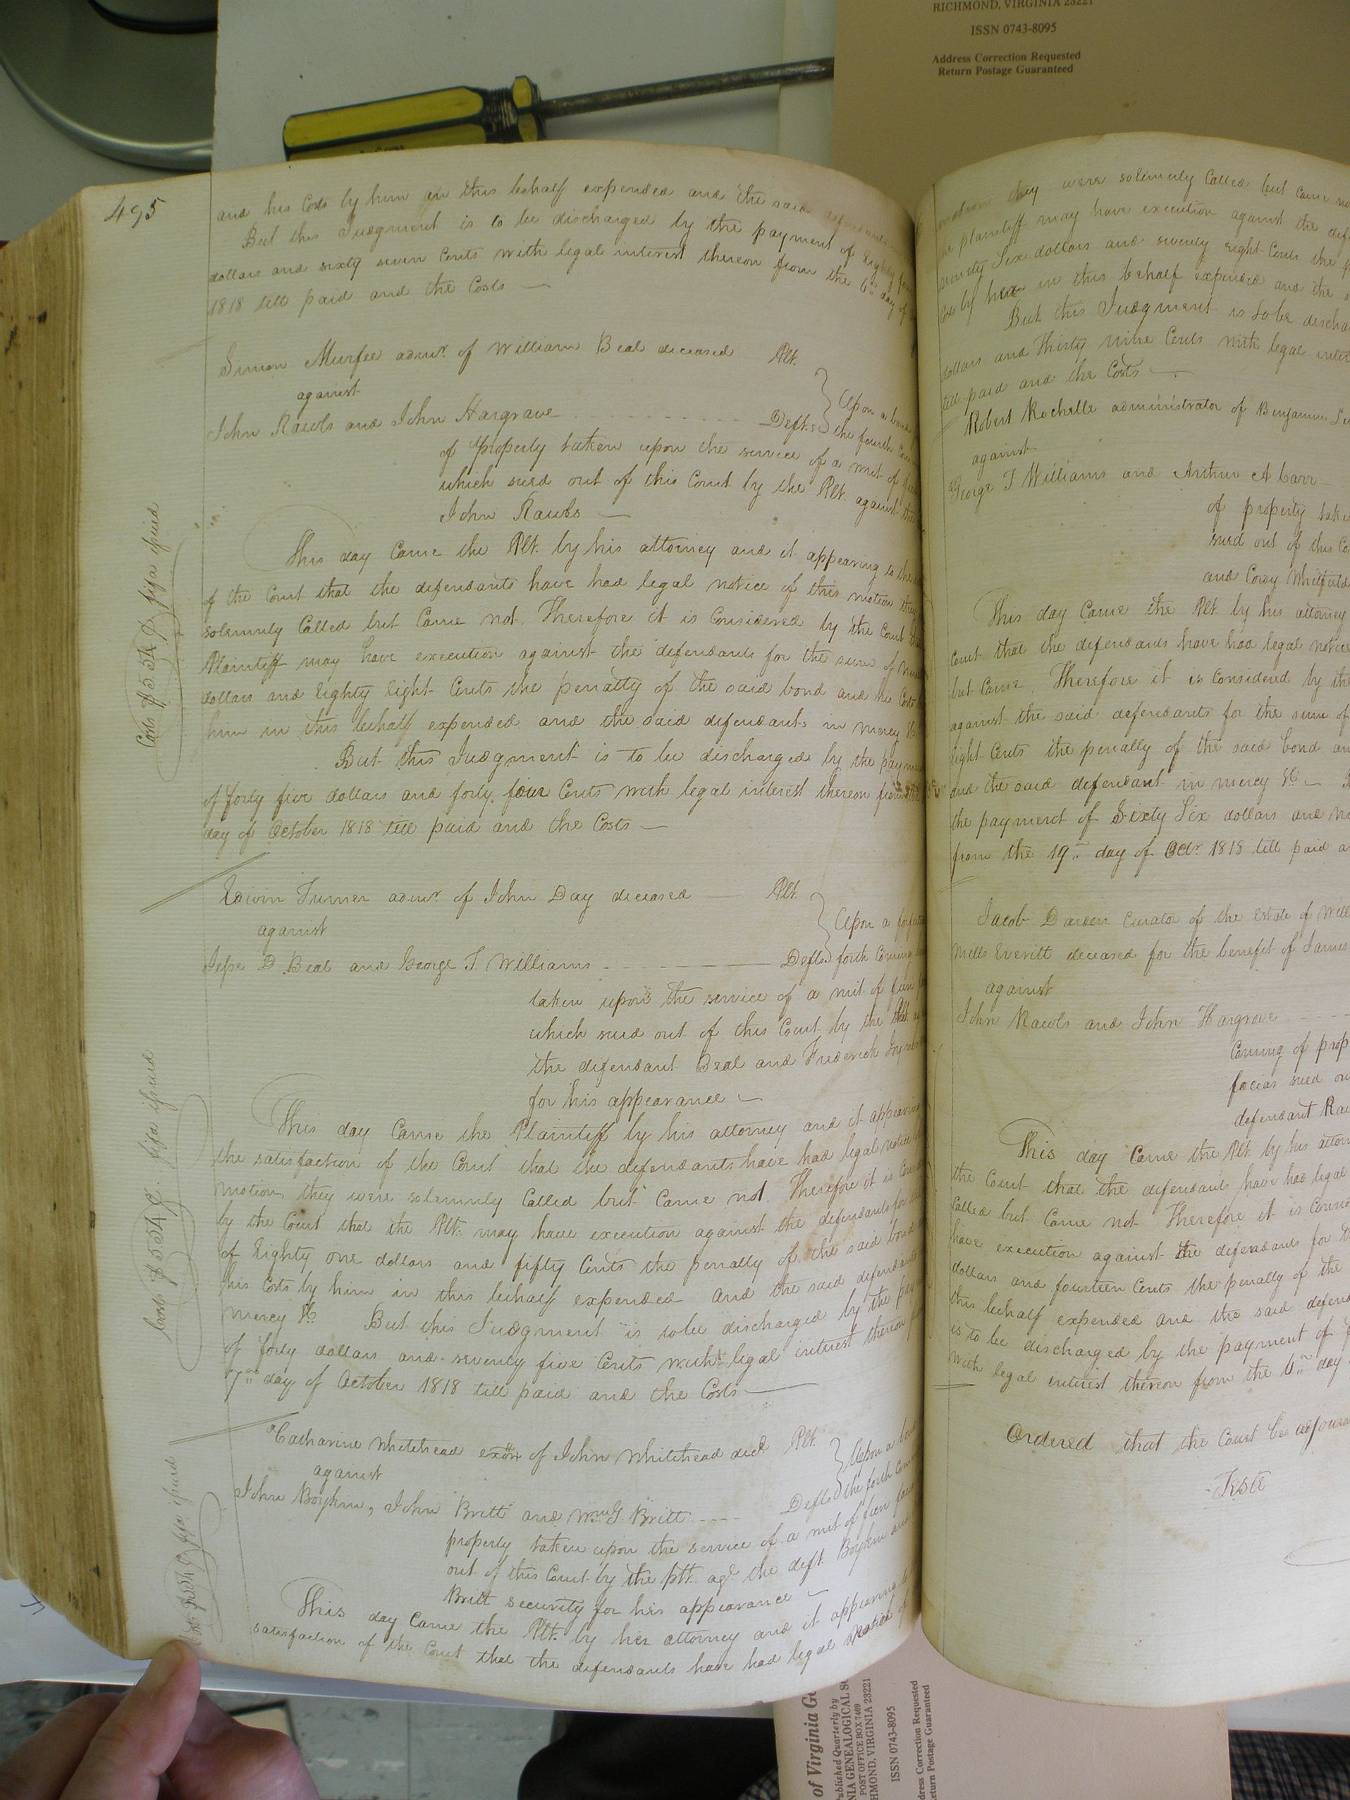 RICHMOND, VIRGINIA 23221
ISSN 0743-8095
Address Correction Requested
Return Postage Guaranteed
495
and his Costs by him in this behalf expended and the said defendants
But this Judgment is to be discharged by the payment of Eighty
dollars and sixty seven Cents with legal interest thereon from the 6th day of
1818 till paid and the Costs —
Simon Murfee admr. of William Beal deceased Plt.
against
John Rawls and John Hargrave Defts
Upon a bond
the fourth
of property taken upon the service of a writ of
which sued out of this Court by the Plt. against the
John Rawls —
Costs $5.54 P. fifa issued
This day Came the Plt. by his attorney and it appearing to the
of the Court that the defendants have had legal notice of this motion they
solemnly Called but Came not. Therefore it is Considered by the Court that
Plaintiff may have execution against the defendants for the sum of
dollars and Eighty Eight Cents the penalty of the said bond and his Costs by
him in this behalf expended and the said defendants in mercy &c
But this Judgment is to be discharged by the payment
of forty five dollars and forty four Cents with legal interest thereon from the
day of October 1818 till paid and the Costs —
Edwin Turner admr. of John Day deceased — Plt.
against
Jesse D. Beal and George T. Williams Defts
Upon a
forth Coming
taken upon the service of a writ of
which sued out of this Court by the Plt.
the defendant Beal and Frederick
for his appearance —
Costs $5.54 P. fifa issued
This day Came the Plaintiff by his attorney and it appearing
the satisfaction of the Court that the defendants have had legal notice
motion they were solemnly Called but Came not Therefore it is
by the Court that the Plt. may have execution against the defendants for
of Eighty one dollars and fifty Cents the penalty of the said bond
his Costs by him in this behalf expended and the said defendants
mercy &c But this Judgment is to be discharged by the
of forty dollars and seventy five Cents with legal interest thereon
7th day of October 1818 till paid and the Costs —
Catharine Whitehead exōr of John Whitehead decd Plt.
against
John Boykin, John Britt and Wm G Britt Defts
Upon a bond
the forth Coming
property taken upon the service of a writ of
out of this Court by the plt. agt. the deft. Boykin and
Britt security for his appearance —
$5.54 P. fifa issued
This day Came the Plt. by her attorney and it appearing
satisfaction of the Court that the defendants have had legal notice of
they were solemnly Called but came not
plaintiff may have execution against the
Six dollars and seventy eight Cents the
Costs by her in this behalf expended and the
But this Judgment is to be
dollars and Thirty nine Cents with legal
till paid and the Costs —
Robert Rochelle administrator of Benjamin
against
George T Williams and Arthur A Carr
of property
sued out of this
and Corey Whitfield
This day Came the Plt by his attorney
Court that the defendants have had legal notice
but Came. Therefore it is Considered by the
against the said defendants for the sum of
Eight Cents the penalty of the said bond
and the said defendant in mercy &c —
the payment of Sixty Six dollars and
from the 19th day of Octr 1818 till paid
Jacob Darden Curator of the Estate of
Mills Everitt deceased for the benefit of James
against
John Rawls and John Hargrave
Coming of
facias sued
defendant
This day Came the Plt. by his
the Court that the defendants have had legal
Called but Came not Therefore it is
have execution against the defendants for
dollars and fourteen Cents the penalty of the
this behalf expended and the said
is to be discharged by the payment of
with legal interest thereon from the 6th day
Ordered that the Court be
Teste
of Virginia
Published Quarterly by
GENEALOGICAL
POST OFFICE BOX 7469
RICHMOND, VIRGINIA 23221
ISSN 0743-8095
Address Correction Requested
Return Postage Guaranteed